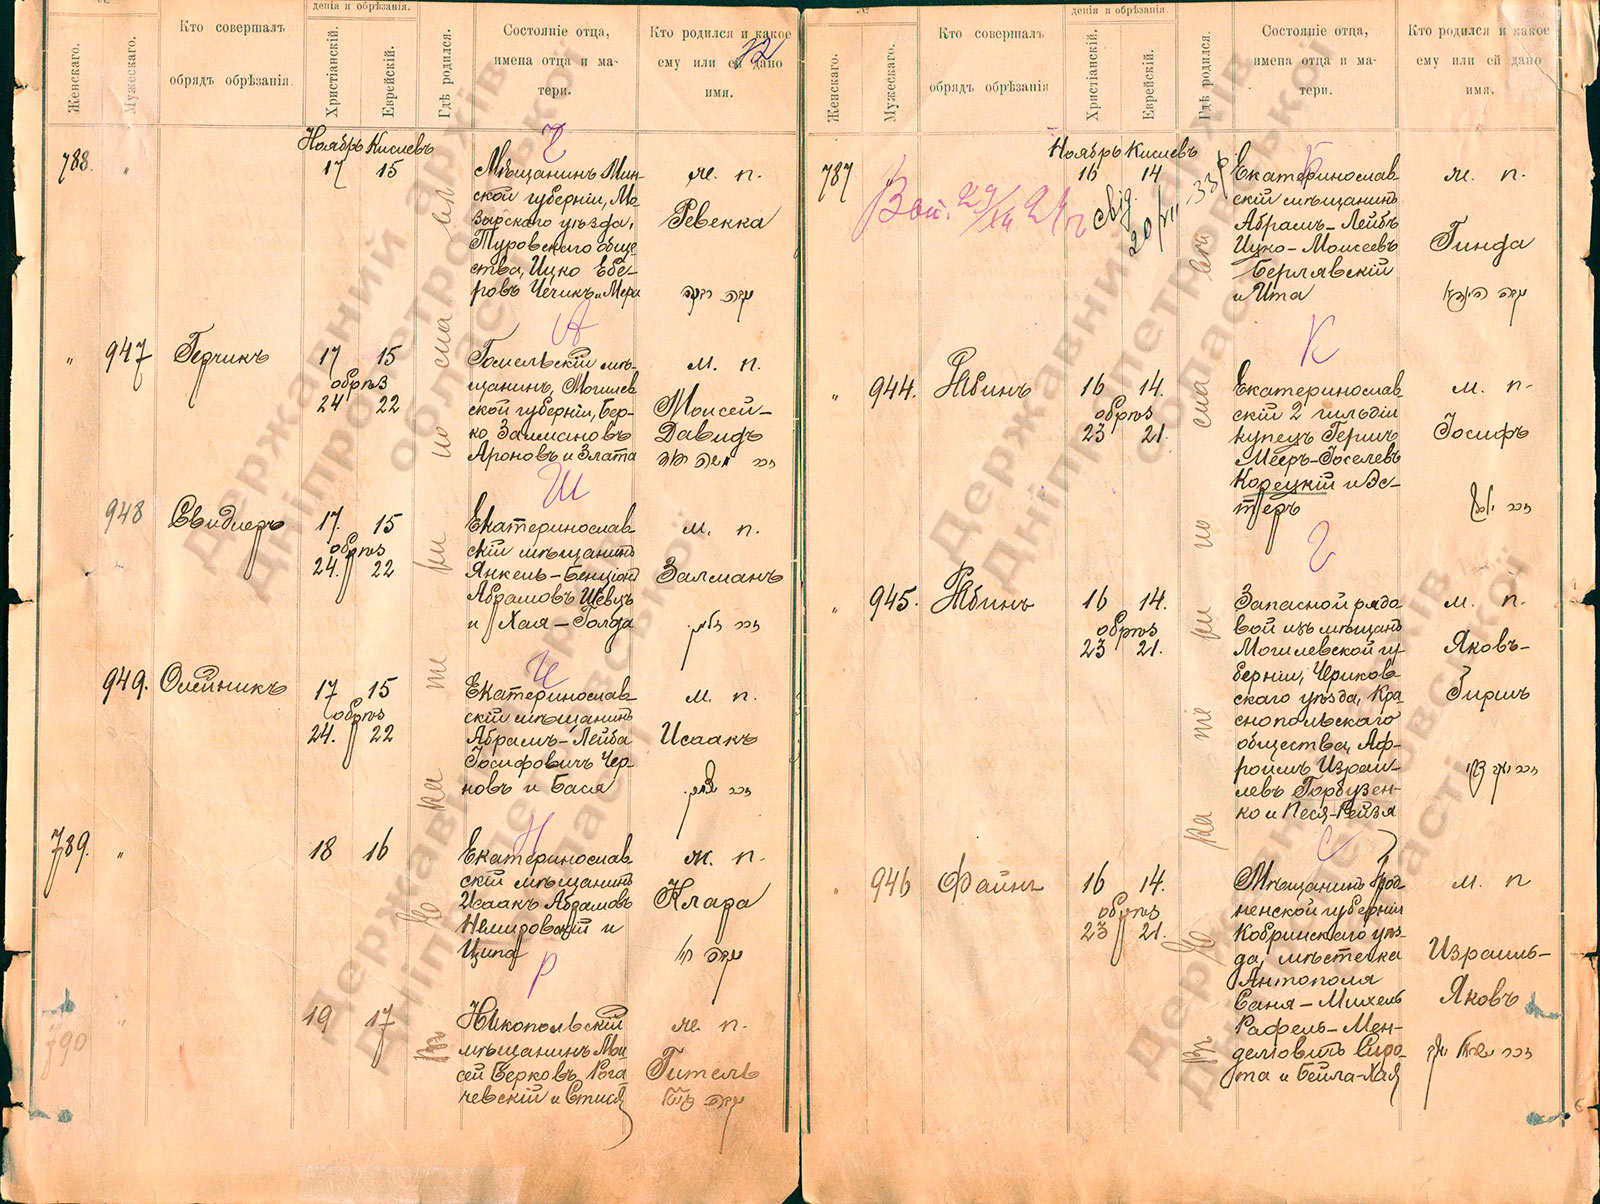 №
дения и обрѣзанія.
Женскаго.
Мужескаго.
Кто совершалъ
обрядъ обрѣзанія
Христіанскій.
Еврейскій.
Гдѣ родился.
Состояніе отца,
имена отца и ма-
тери.
Кто родился и какое
ему или ей дано
имя.
72
Ноябрь Кислевъ
Въ Екатеринославлѣ
788.
"
17 15
Ч
Мѣщанинъ Мин-
ской губерніи, Мо
зырскаго уѣзда,
Туровскаго обще
ства, Ицко Ебе-
ровъ Чечикъ и Мера
ж. п.
Ревекка
" 947
Герчикъ
17 15
обрѣз
24 22
А
Гомельскій мѣ-
щанинъ, Могилев
ской губерніи, Бер-
ко Залмановъ
Ароновъ и Злата
м. п.
Моисей-
Давидъ
948
Свидлеръ
17. 15
обрѣз
24. 22
Ш
Екатеринослав
скій мѣщанинъ
Янкель-Бенціонъ
Абрамовъ Шевцъ
и Хая-Голда
м. п.
Залманъ
949.
Олейникъ
17 15
обрѣз
24. 22
Ч
Екатеринослав-
скій мѣщанинъ
Абрамъ-Лейба
Іосифовичъ Чер-
новъ и Бася
м. п.
Исаакъ
789.
"
18 16
Н
Екатеринослав
скій мѣщанинъ
Исаакъ Абрамовъ
Немировскій и
Ципа
ж. п.
Клара
790
"
19 17
Р
Никопольскій
мѣщанинъ Мои
сей Берковъ Рога
чевскій и Стися
ж. п.
Гитель
№
дения и обрѣзанія.
Женскаго.
Мужескаго.
Кто совершалъ
обрядъ обрѣзанія
Христіанскій.
Еврейскій.
Гдѣ родился.
Состояніе отца,
имена отца и ма-
тери.
Кто родился и какое
ему или ей дано
имя.
Ноябрь Кислевъ
787
16 14
свід.
20/VII 33 р
Б
Екатеринослав-
скій мѣщанинъ
Абрамъ-Лейбъ
Ицко-Моисеевъ
Берлявскій
и Ита
ж. п.
Гинда
" 944.
Рабинъ
16 14.
обрѣз
23 21.
К
Екатеринослав-
скій 2 гильдіи
купецъ Гершъ
Мееръ-Іоселевъ
Корецкій и Эс-
тѣръ
м. п.
Іосифъ
" 945.
Рабинъ
16 14.
обрѣз
23 21.
Г
Запасной рядо
вой изъ мѣщанъ
Могилевской гу
берніи, Чериков-
скаго уѣзда, Кра
снопольскаго
общества, Аф-
роимъ Израи-
левъ Горбузен-
ко и Песя-Рейзя
м. п.
Яковъ-
Гиршъ
" 946
Файнъ
16 14.
обрѣз
23 21.
С
Мѣщанинъ Грод
ненской губерніи
Кобринскаго уѣз-
да, мѣстечка
Антополя
Саня-Михель
Рафель-Мен-
делевитъ Сиро-
та и Бейла-Хая
м. п
Израиль-
Яковъ
Въ Екатеринославлѣ
Державний архів
Дніпропетровської
області